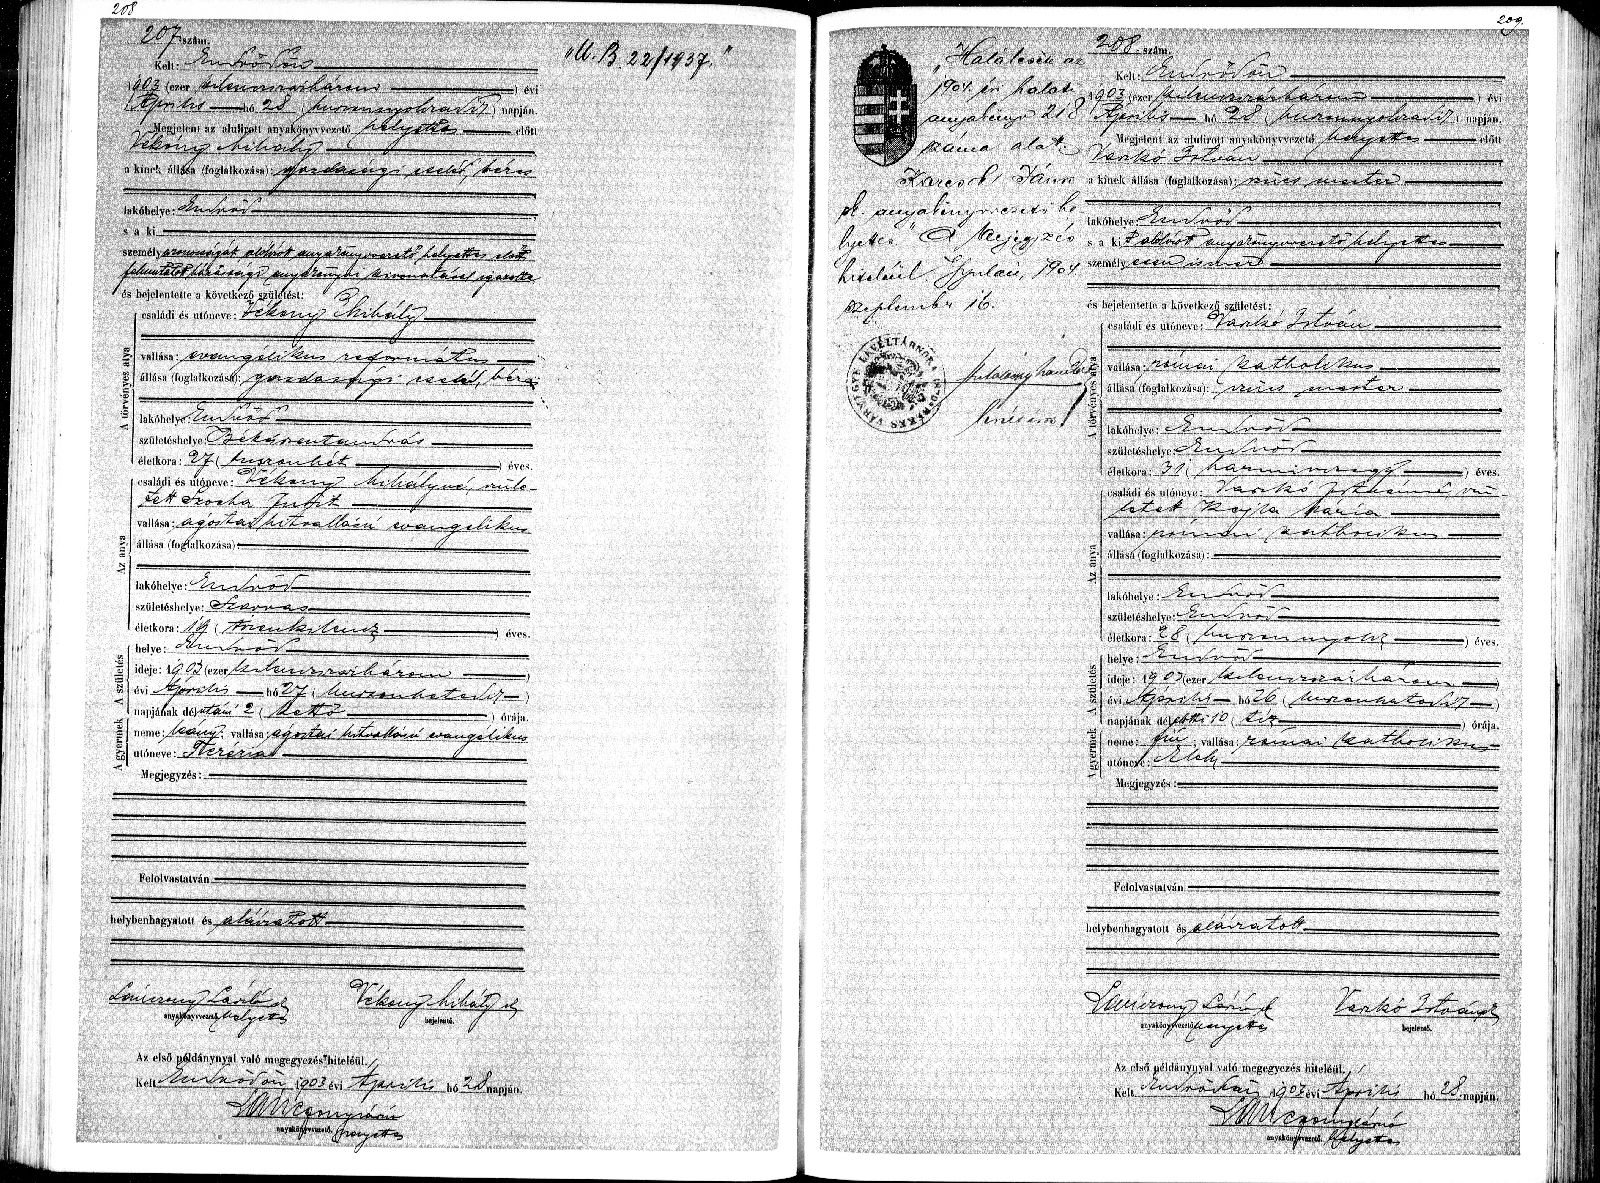 208
207 szám.
Kelt: Endrődön
1903 (ezer kilenczszázhárom) évi
Április hó 28 (huszonnyolczadik) napján.
Megjelent az alulirott anyakönyvvezető helyettes előtt
Vékony Mihály
a kinek állása (foglalkozása): gazdasági cseléd, béres
lakóhelye: Endrőd
s a ki
személyazonosságát alólirt anyakönyvvezető helyettes előtt
felmutatott házassági anyakönyvi kivonatával igazolta
és bejelentette a következő születést:
A törvényes atya
családi és utóneve: Vékony Mihály
vallása: evangélikus református
állása (foglalkozása): gazdasági cseléd, béres
lakóhelye: Endrőd
születéshelye: Békésszentandrás
életkora: 27 (huszonhét) éves.
Az anya
családi és utóneve: Vékony Mihályné, szüle-
tett Judit
vallása: ágostai hitvallású evangélikus
állása (foglalkozása):
lakóhelye: Endrőd
születéshelye: Szarvas
életkora: 19 (tizenkilencz) éves.
A születés
helye: Endrőd
ideje: 1903 (ezer kilenczszázhárom)
évi Április hó 27 (huszonhetedik)
napjának délutáni 2 (kettő) órája.
A gyermek
neme: leány; vallása: ágostai hitvallású evangélikus
utóneve: Terézia
Megjegyzés:
Felolvastatván
helybenhagyatott és aláiratott
László
anyakönyvvezető helyettes
Vékony Mihály
bejelentő.
Az első példánynyal való megegyezés hiteléül.
Kelt Endrődön, 1903 évi Április hó 28 napján.
anyakönyvvezető. helyettes
"U. B. 22/1937."
209.
"Halálesete az
1904. évi halotti
anyakönyv 218
száma alatt.
János
sk. anyakönyvvezető he-
lyettes" A Megjegyzés
hiteléül Gyulán, 1904
szeptember 16.
208. szám.
Kelt: Endrődön
1903 (ezer kilenczszázhárom) évi
Április hó 28 (huszonnyolczadik) napján.
Megjelent az alulirott anyakönyvvezető helyettes előtt
Varkó István
a kinek állása (foglalkozása): szűcs mester
lakóhelye: Endrőd
s a kit alólirt anyakönyvvezető helyettes
személyesen ismer
és bejelentette a következő születést:
A törvényes atya
családi és utóneve: Varkó István
vallása: római katholikus
állása (foglalkozása): szűcs mester
lakóhelye: Endrőd
születéshelye: Endrőd
életkora: 31 (harminczegy) éves.
Az anya
családi és utóneve: Varkó Istvánné, szü-
letett Mária
vallása: római katholikus
állása (foglalkozása):
lakóhelye: Endrőd
születéshelye: Endrőd
életkora: 28 (huszonnyolcz) éves.
A születés
helye: Endrőd
ideje: 1903 (ezer kilenczszázhárom
évi Április hó 26 (huszonhatodik)
napjának délelőtti 10 (tíz) órája.
A gyermek
neme: fiú; vallása: római katholikus
utóneve: Elek
Megjegyzés:
Felolvastatván
helybenhagyatott és aláiratott
anyakönyvvezető helyettes
Varkó István
bejelentő.
Az első példánynyal való megegyezés hiteléül.
Kelt Endrődön, 1903 évi Április hó 28. napján.
anyakönyvvezető. helyettes